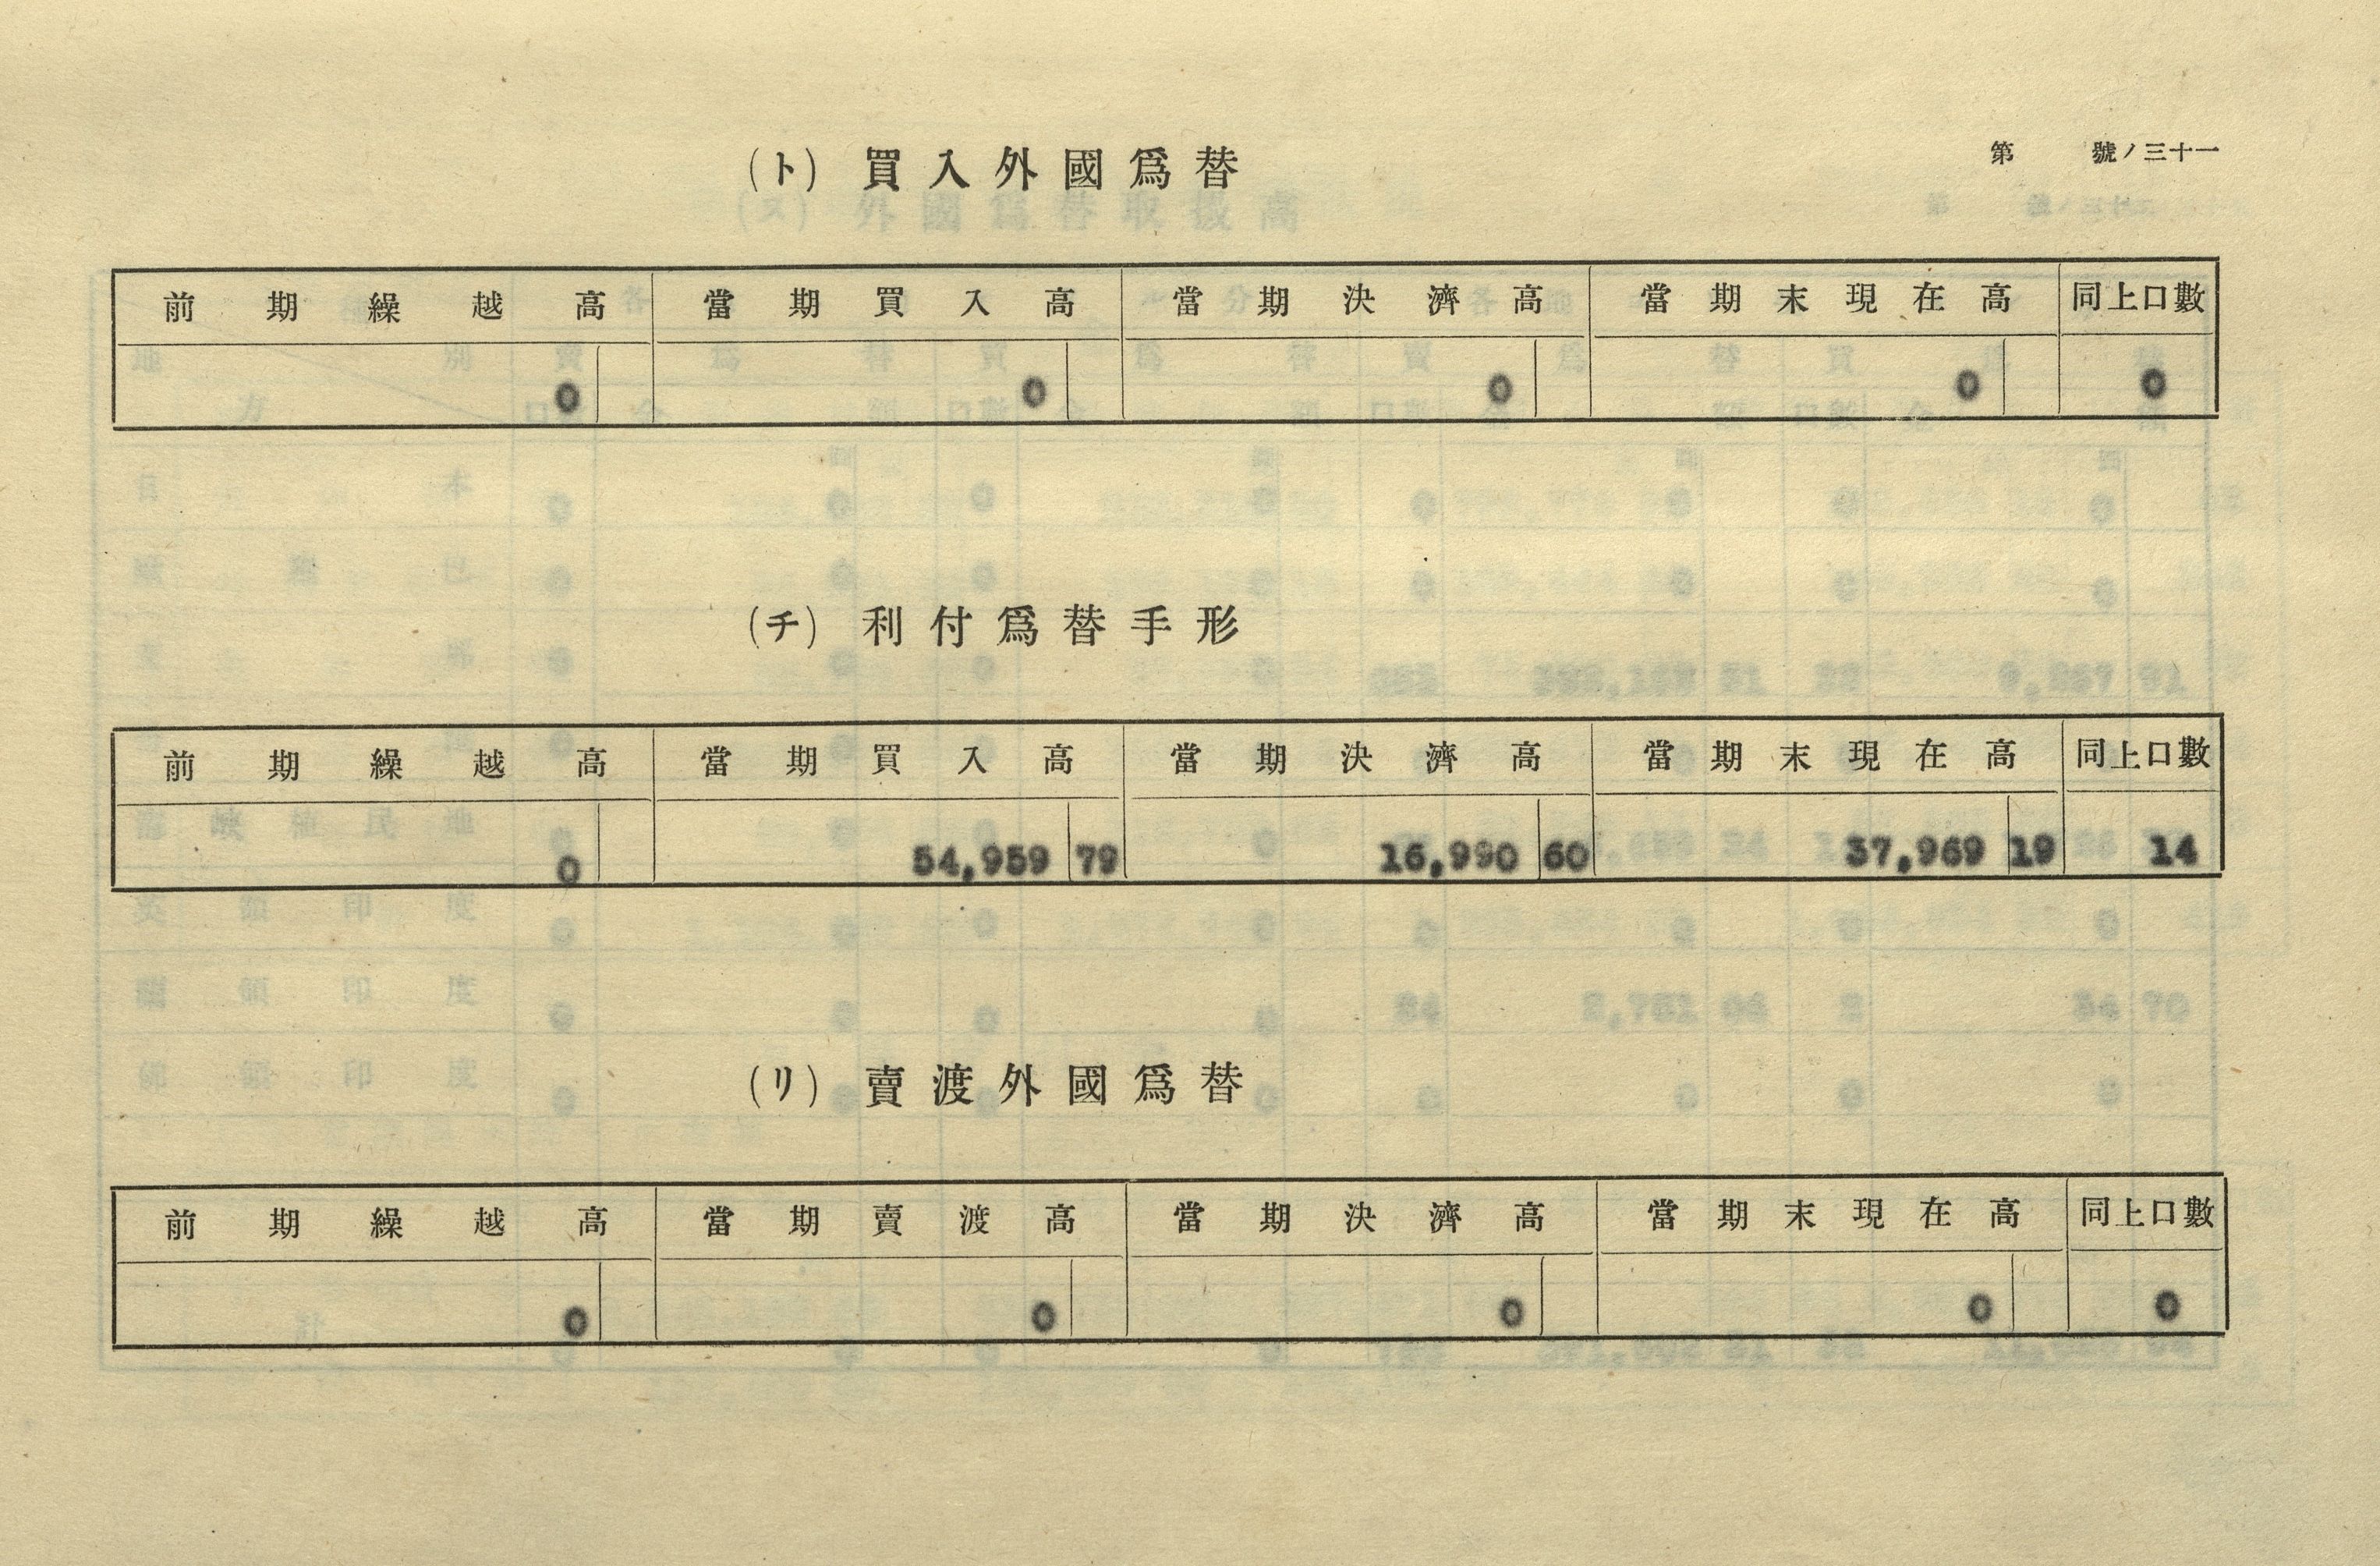 第 號ノ三十一
(ト) 買入外國爲替
前期繰越高 當期買入高 當期決濟高 當期末現在高 同上口數
0 0 0 0 0
(チ) 利付爲替手形
前期繰越高 當期買入高 當期決濟高 當期末現在高 同上口數
0 54,959 79 16,990 60 37,969 19 14
(リ) 賣渡外國爲替
前期繰越高 當期賣渡高 當期決濟高 當期末現在高 同上口數
0 0 0 0 0